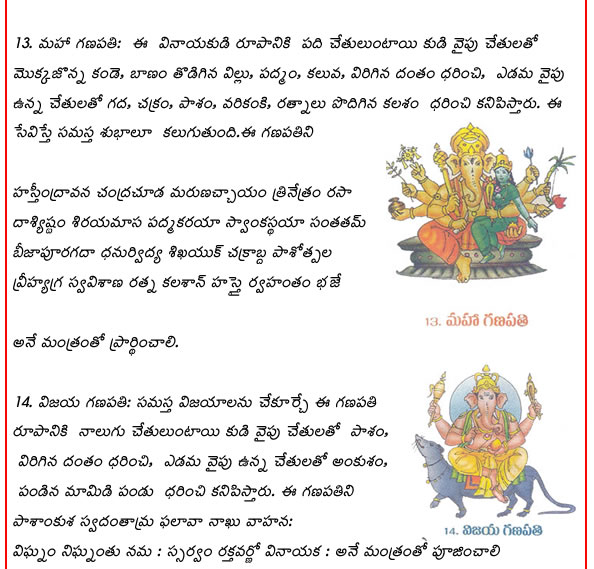 13. మహా గణపతి: ఈ వినాయకుడి రూపానికి పది చేతులుంటాయి కుడి వైపు చేతులతో
మొక్కజొన్న కండె, బాణం తొడిగిన విల్లు, పద్మం, కలువ, విరిగిన దంతం ధరించి, ఎడమ వైపు
ఉన్న చేతులతో గద, చక్రం, పాశం, వరికంకి, రత్నాలు పొదిగిన కలశం ధరించి కనిపిస్తారు. ఈ
సేవిస్తే సమస్త శుభాలూ కలుగుతుంది.ఈ గణపతిని
హస్తీంద్రావన చంద్రచూడ మరుణచ్చాయం త్రినేత్రం రసా
దాశ్యిష్టం శిరయమాస పద్మకరయా స్వాంకస్థయా సంతతమ్
బీజాపూరగదా ధనుర్విద్య శిఖయుక్ చక్రాబ్ద పాశోత్పల
వ్రీహ్యగ్ర స్వవిశాణ రత్న కలశాన్ హస్తై ర్వహంతం భజే
అనే మంత్రంతో ప్రార్థించాలి.
13. మహా గణపతి
14. విజయ గణపతి: సమస్త విజయాలను చేకూర్చే ఈ గణపతి
రూపానికి నాలుగు చేతులుంటాయి కుడి వైపు చేతులతో పాశం,
విరిగిన దంతం ధరించి, ఎడమ వైపు ఉన్న చేతులతో అంకుశం,
పండిన మామిడి పండు ధరించి కనిపిస్తారు. ఈ గణపతిని
పాశాంకుశ స్వదంతామ్ర ఫలావా నాఖు వాహన:
విఘ్నం నిఘ్నంతు నమ : స్సర్వం రక్తవర్ణో వినాయక : అనే మంత్రంతో పూజించాలి
14. విజయ గణపతి